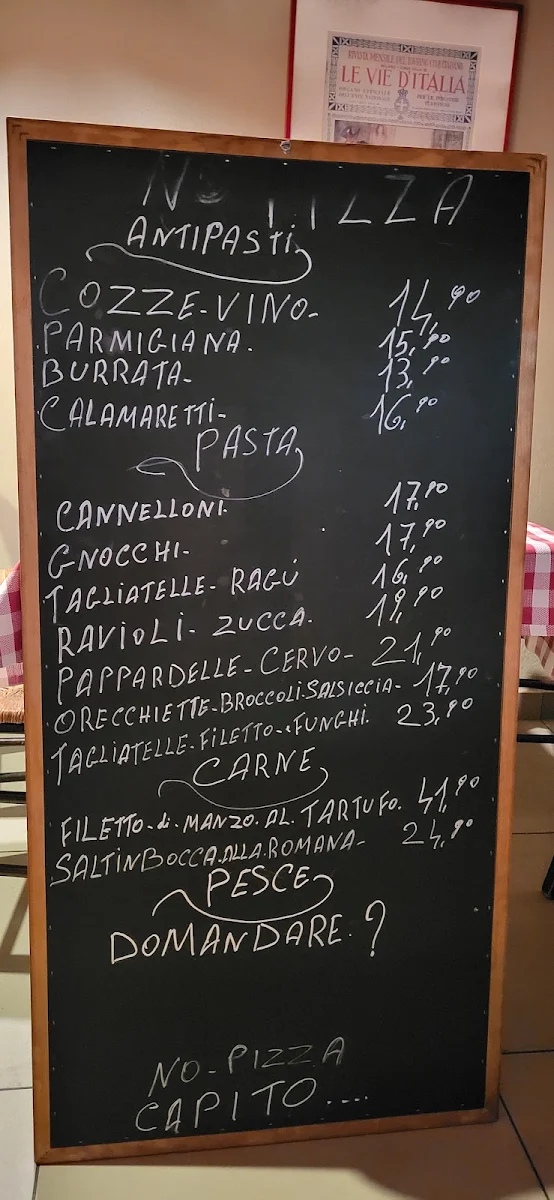 RIVISTA MENSILE DEL TOURING CLUB ITALIANO
LE VIE D'ITALIA
NO PIZZA
ANTIPASTi
COZZE-VINO- 14,90
PARMIGIANA- 15,90
BURRATA- 13,90
CALAMARETTi- 16,90
PASTA
CANNELLONI- 17,90
GNOCCHI- 17,90
TAGLIATELLE- RAGÚ 16,90
RAVIOLI- ZUCCA. 19,90
PAPPARDELLE-CERVO- 21,90
ORECCHIETTE-BROCCOLI-SALSICCIA- 17,90
TAGLIATELLE-FILETTO-FUNGHI. 23,90
CARNE
FILETTO-di-MANZO.AL.TARTUFO. 41,90
SALTINBOCCA.ALLA.ROMANA- 24,90
PESCE
DOMANDARE.?
NO-PIZZA
CAPITO....